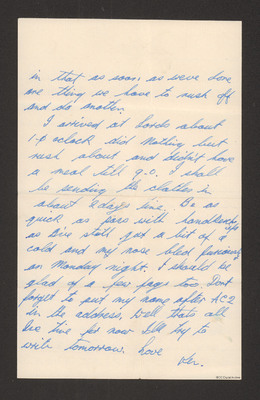 in that as soon as weve done
one thing we have to rush off
and do another.
I arrived at Lords about
1-0 oclock did nothing but
rush about and didn't have
a meal till 9.0. I shall
be sending the clothes in
about days time. Be as
quick as poss with handkerchfs
as Ive still got a bit of a
cold and my nose bled furiously
on Monday night. I should be
glad of a few fags too. Dont
forget to put my name after AC2
in the address. Well thats all
Ive time for now Ill try to
write tomorrow. Love
Ken.